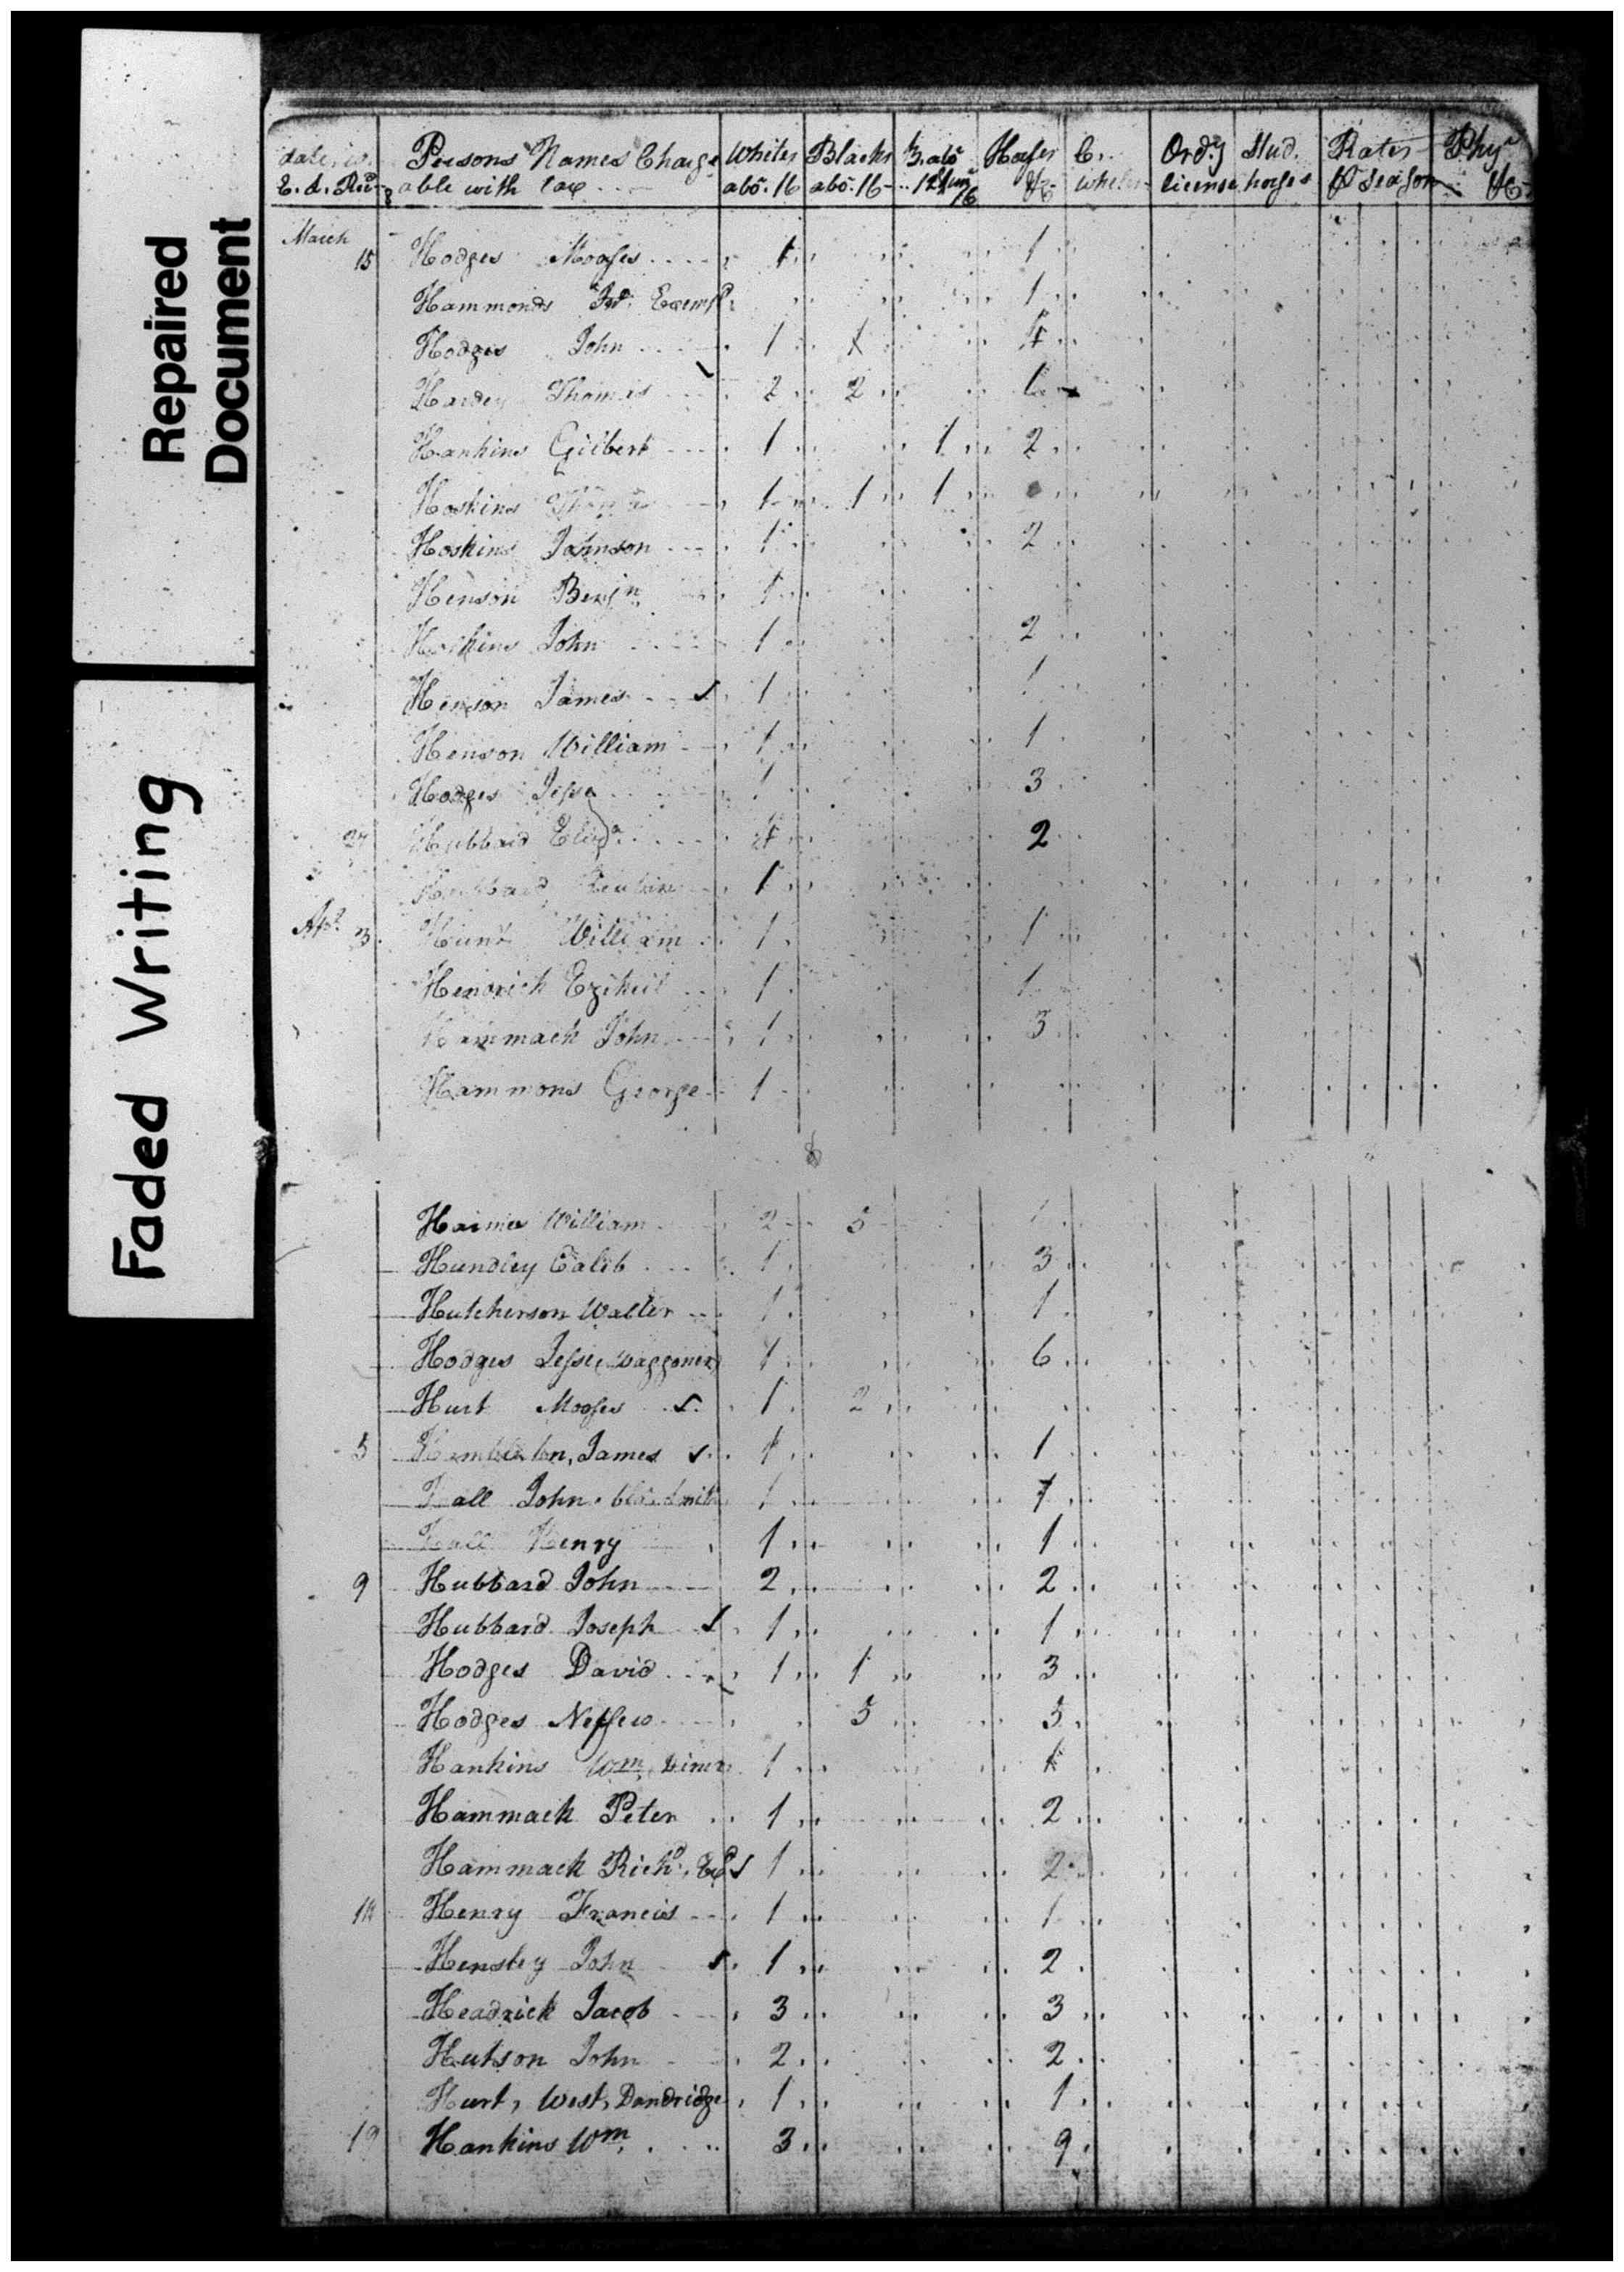 Repaired
Document
Faded Writing
Persons Names Charge Whites Blacks B. abo Horses C. Ordy Stud. Rates Phyn
able with tax abo. 16 abo. 16 12 &c wheels license horses pr season &c
March
15 Hodges Mooses 1 1
Hammonds Exempt 1
Hodges John 1 1 4
Hardey Thomas 2 2
Hankins Gilbert 1 1 2
Hoskins 1 1 1
Hoskins Johnson 1 2
Henson Benjn 1
John 1 2
Henson James 1 1
Henson William 1 1
Hodges Jesse 1 3
27 Hubbard 2
Hubbard 1
Apl 3 Hunt William 1 1
Hendrick Ezekiel 1 1
Hammack John 1 3
Hammons George 1
William 2 5
Hundley Caleb 1 3
Hutcherson Walter 1 1
Hodges Jesse, waggoner 1 6
Hurt Mooses 1 2
5 Hambleton, James 1 1
Hall John 1
Hall Henry 1 1
9 Hubbard John 2 2
Hubbard Joseph 1 1
Hodges David 1 1 3
Hodges 5 5
Hankins Wm. 1
Hammack Peter 1 2
Hammack Richd. 1 2
Henry Francis 1 1
Hensley John 1 2
Headrick Jacob 3 3
Hutson John 2 2
Hurt, West, Dandridge 1 1
19 Hankins Wm. 3 9